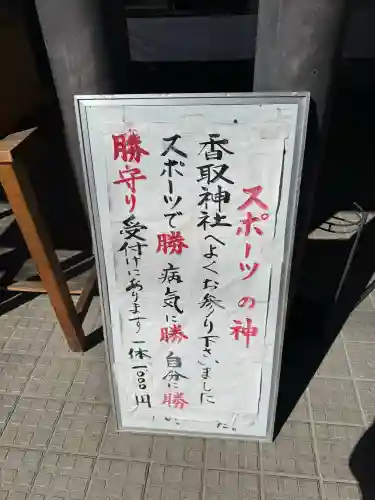 スポーツの神
香取神社へよくお参り下さいました
スポーツで勝 病気に勝 自分に勝
勝守り 受付けにあります 一体一、〇〇〇円